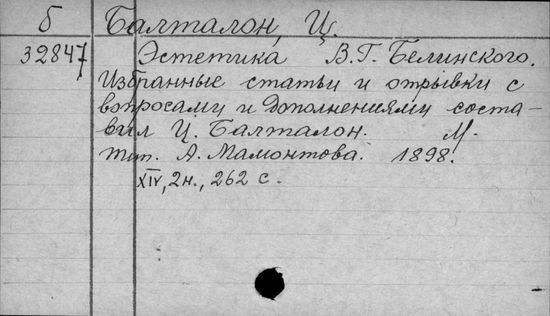 б Балталон, Ц.
32847 Эстетика В.Г. Белинского.
Избранные статьи и отрывки с
вопросами и дополнениями соста-
вил Ц. Балталон. М.
тип. А. Мамонтова. 1898.
XIV, 2н., 262 с.